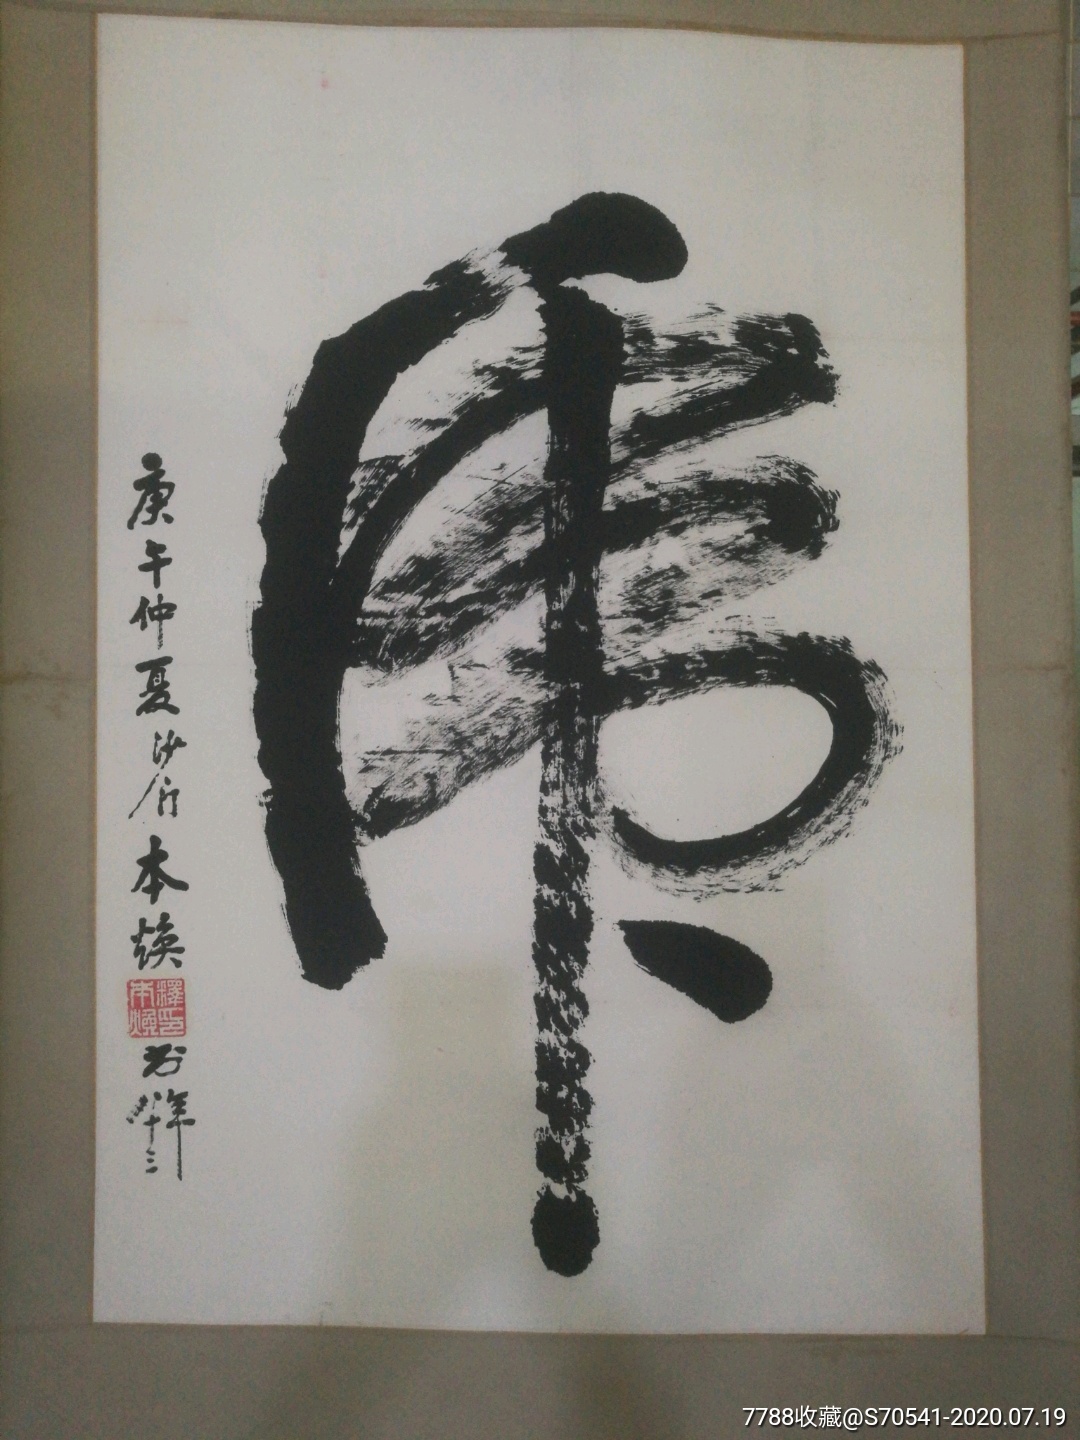 庚午仲夏沙门本焕
釋印
本焕
时年八十三
7788收藏@S70541-2020.07.19